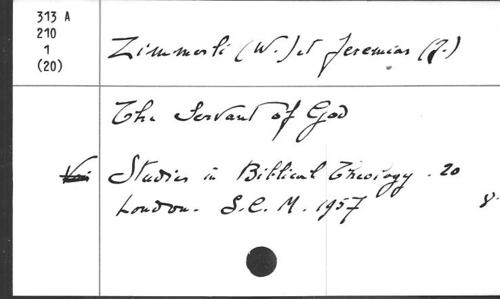 313 A
210
1
(20)
Zimmerli (W.) et Jeremias (J.)
The Servant of God
Studies in Biblical Theology. 20
London. S.C.M. 1957 8.